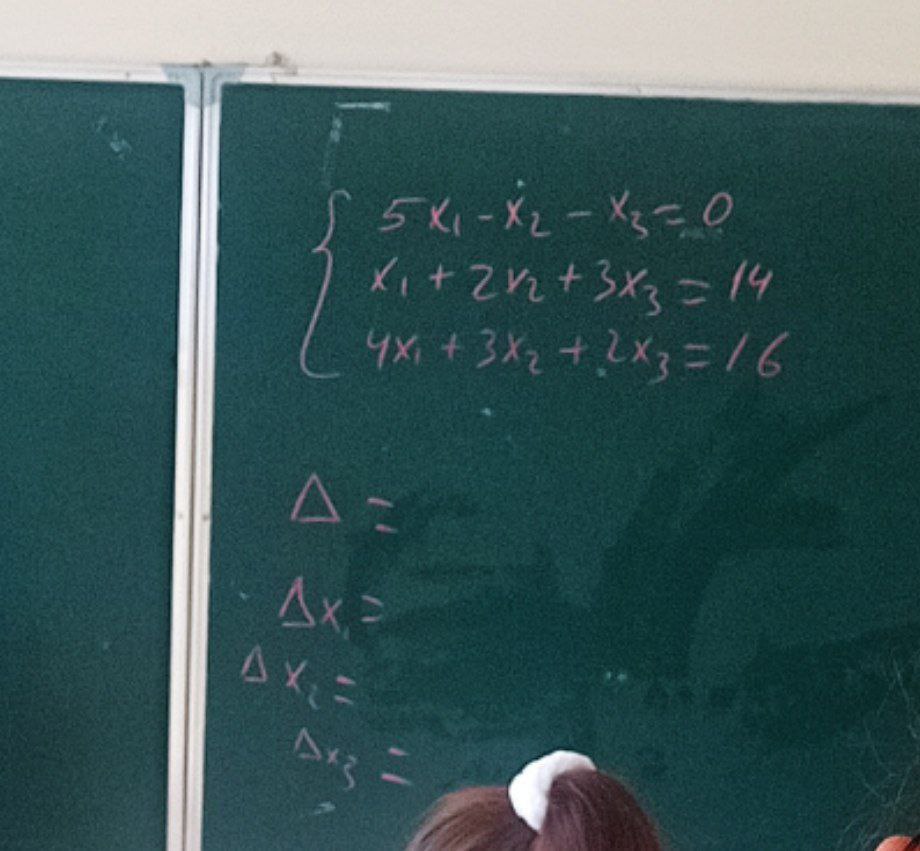 5x₁ - x₂ - x₃ = 0
x₁ + 2x₂ + 3x₃ = 14
4x₁ + 3x₂ + 2x₃ = 16
Δ =
Δx₁ =
Δx₂ =
Δx₃ =